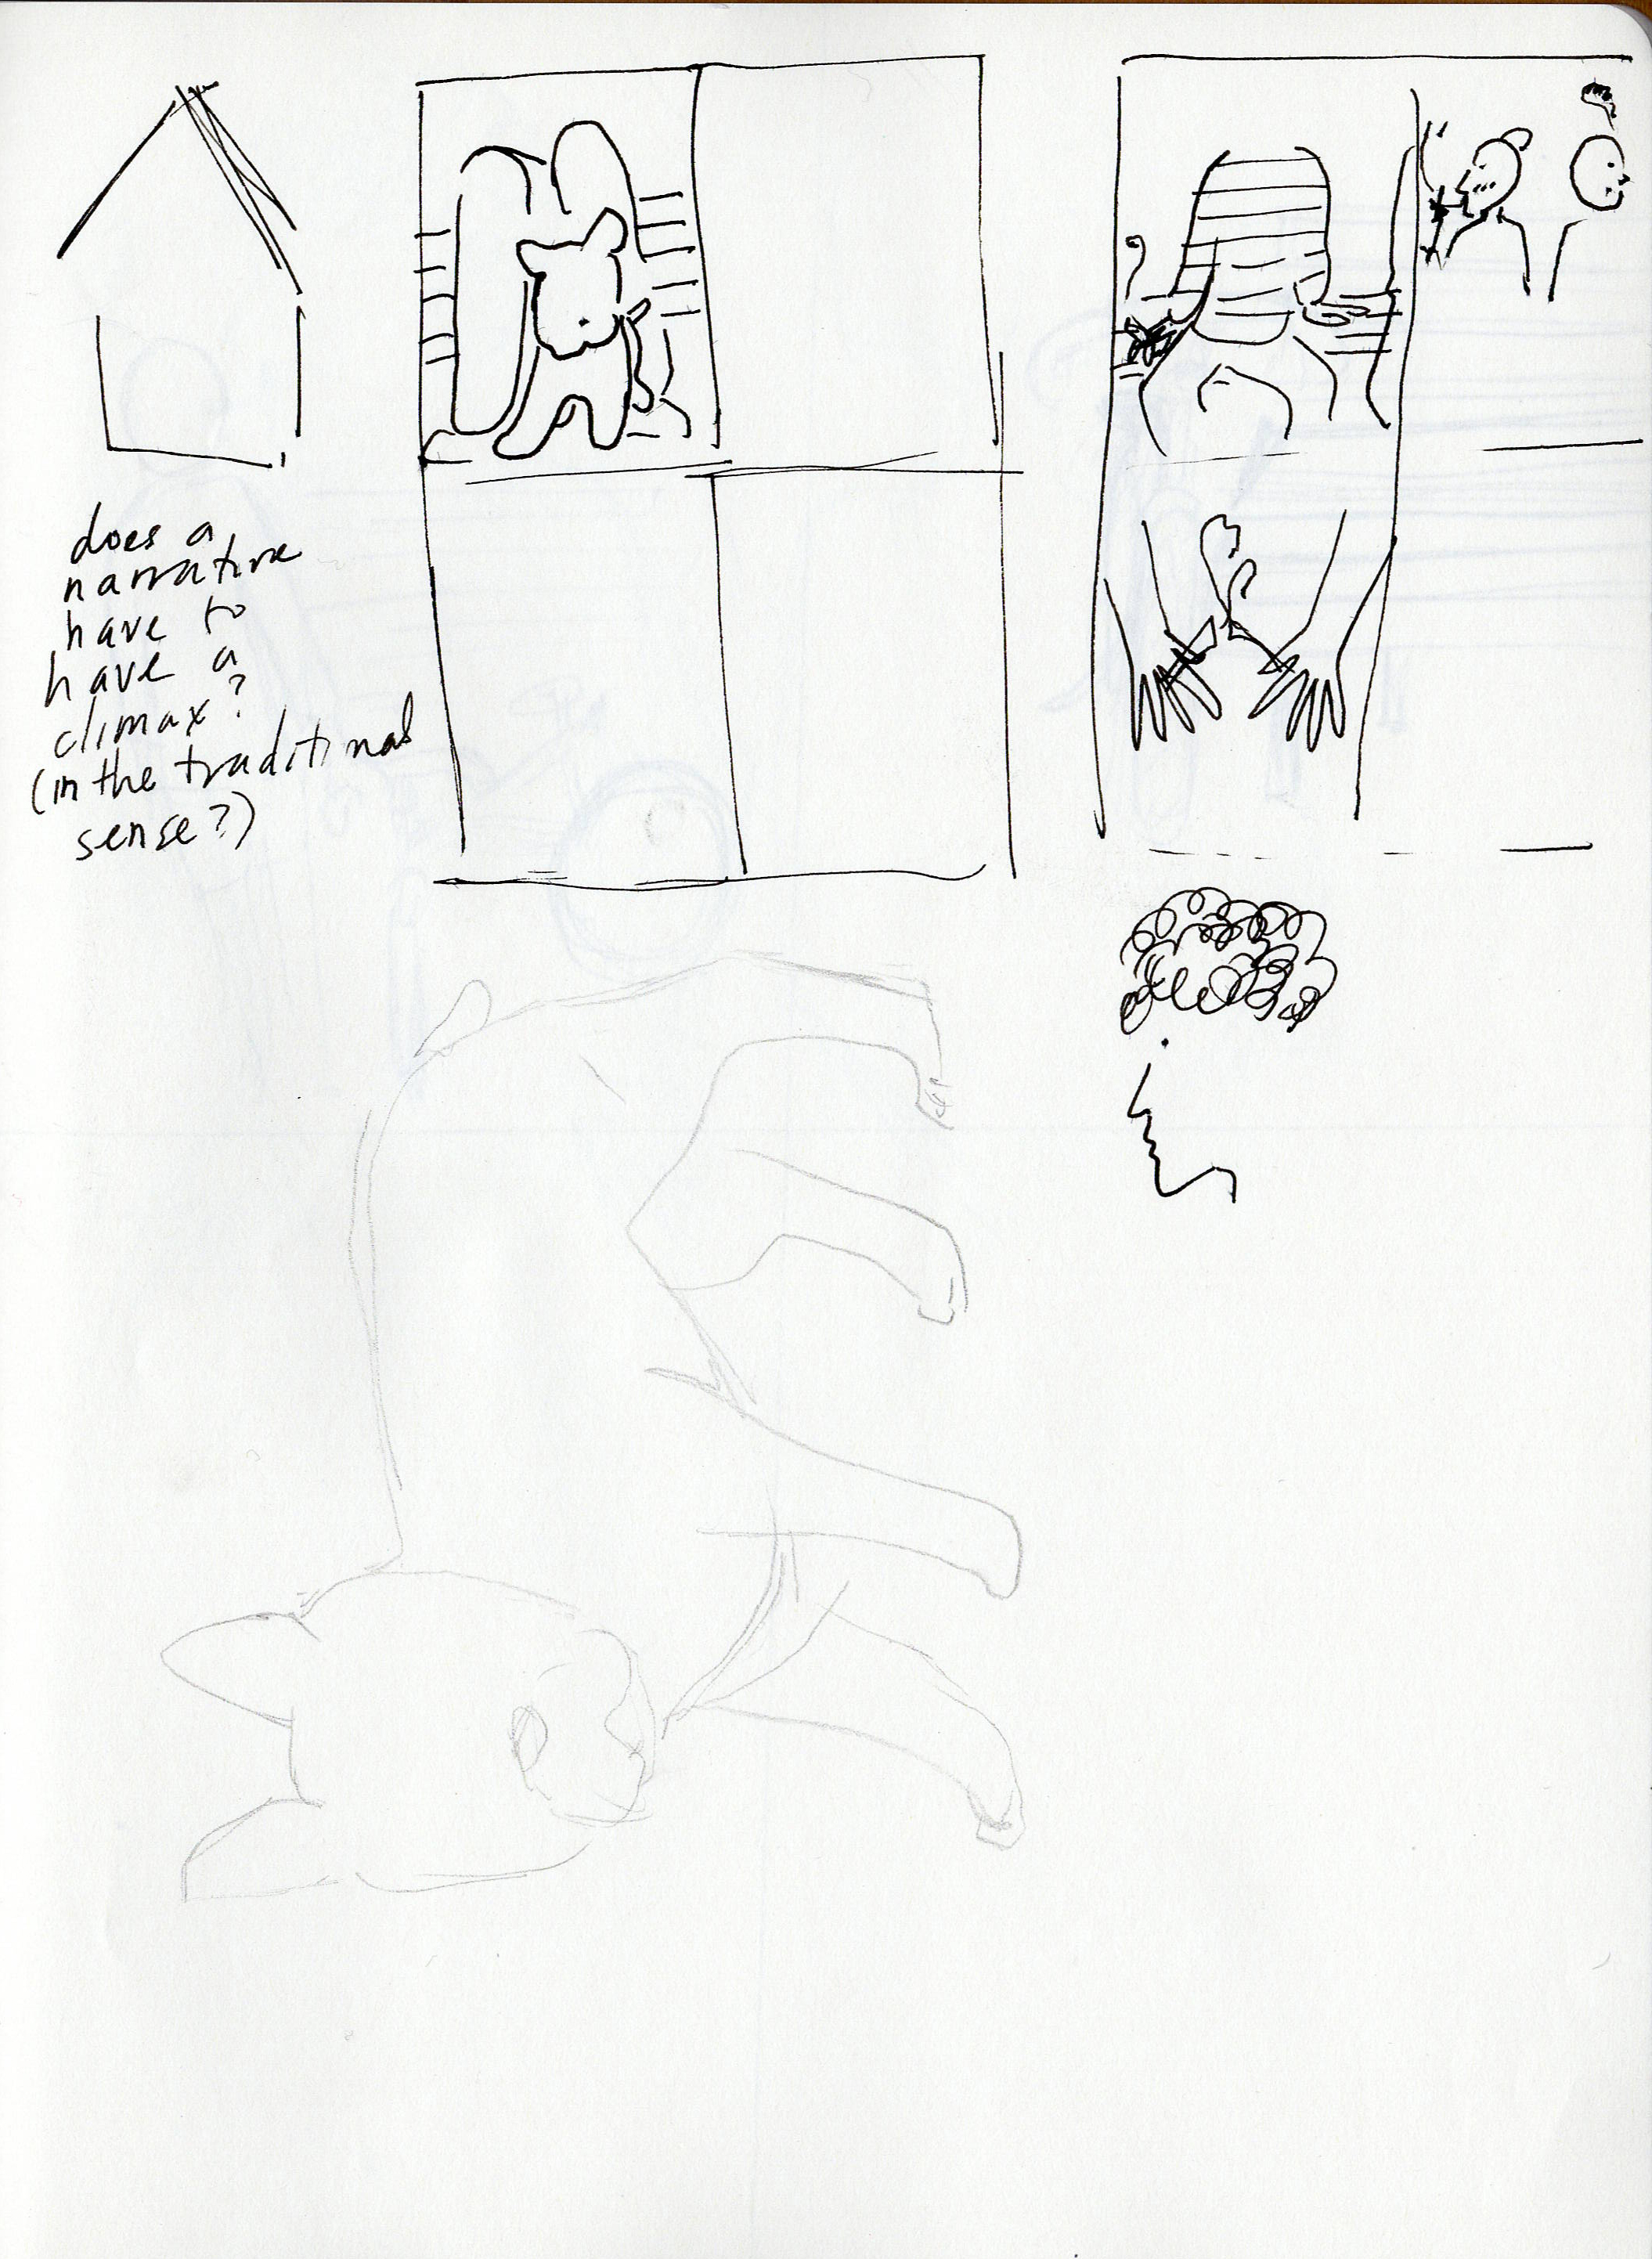 does a
narrative
have to
have a
climax?
(in the traditional
sense?)